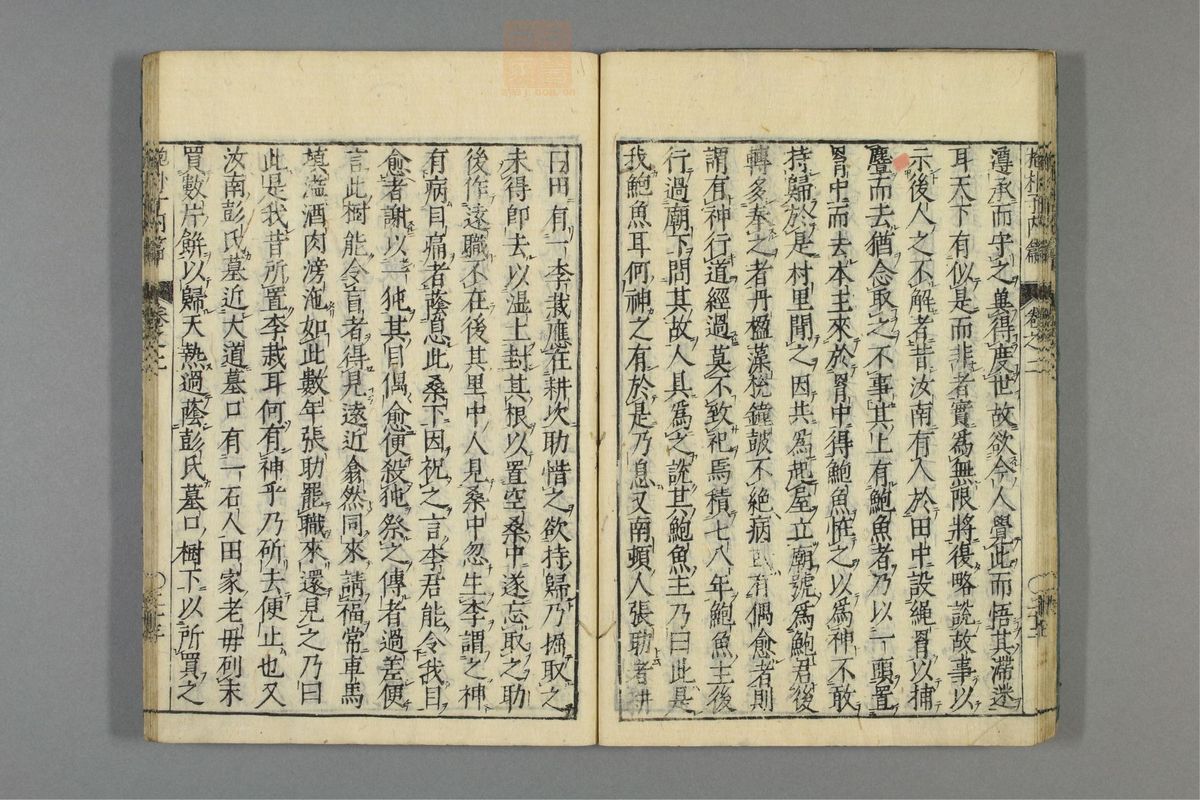 遵承而守之冀得度世故欲令人覺此而悟其滯迷
耳天下有似是而非者實爲無限將復略說故事以
示後人之不解者昔汝南有人於田中設繩罥以捕
麞而去猶念取之不事其上有鮑魚者乃以一頭置
罥中而去本主來於罥中得鮑魚恠之以爲神不敢
持歸於是村里聞之因共爲起屋立廟號爲鮑君後
轉多奉之者丹楹藻梲鐘皷不絶病或有偶愈者則
謂有神行道經過莫不致祀焉積七八年鮑魚主後
行過廟下問其故人具爲之說其鮑魚主乃曰此是
我鮑魚耳何神之有於是乃息又南頓人張助者耕
曰田有一李栽應在耕次助惜之欲持歸乃掘取之
未得即去以温土封其根以置空桑中遂忘取之助
後作遠職不在後其里中人見桑中忽生李謂之神
有病目痛者蔭息此桑下因祝之言李君能令我目
愈者謝以一㹠其目偶愈便殺㹠祭之傳者過差便
言此樹能令盲者得見遠近翕然同來請福常車馬
填溢酒肉滂沲如此數年張助罷職來還見之乃曰
此是我昔所置李栽耳何有神乎乃斫去便止也又
汝南彭氏墓近大道墓口有一石人田家老母到末
買數片餅以歸天熱過蔭彭氏墓口樹下以所買之